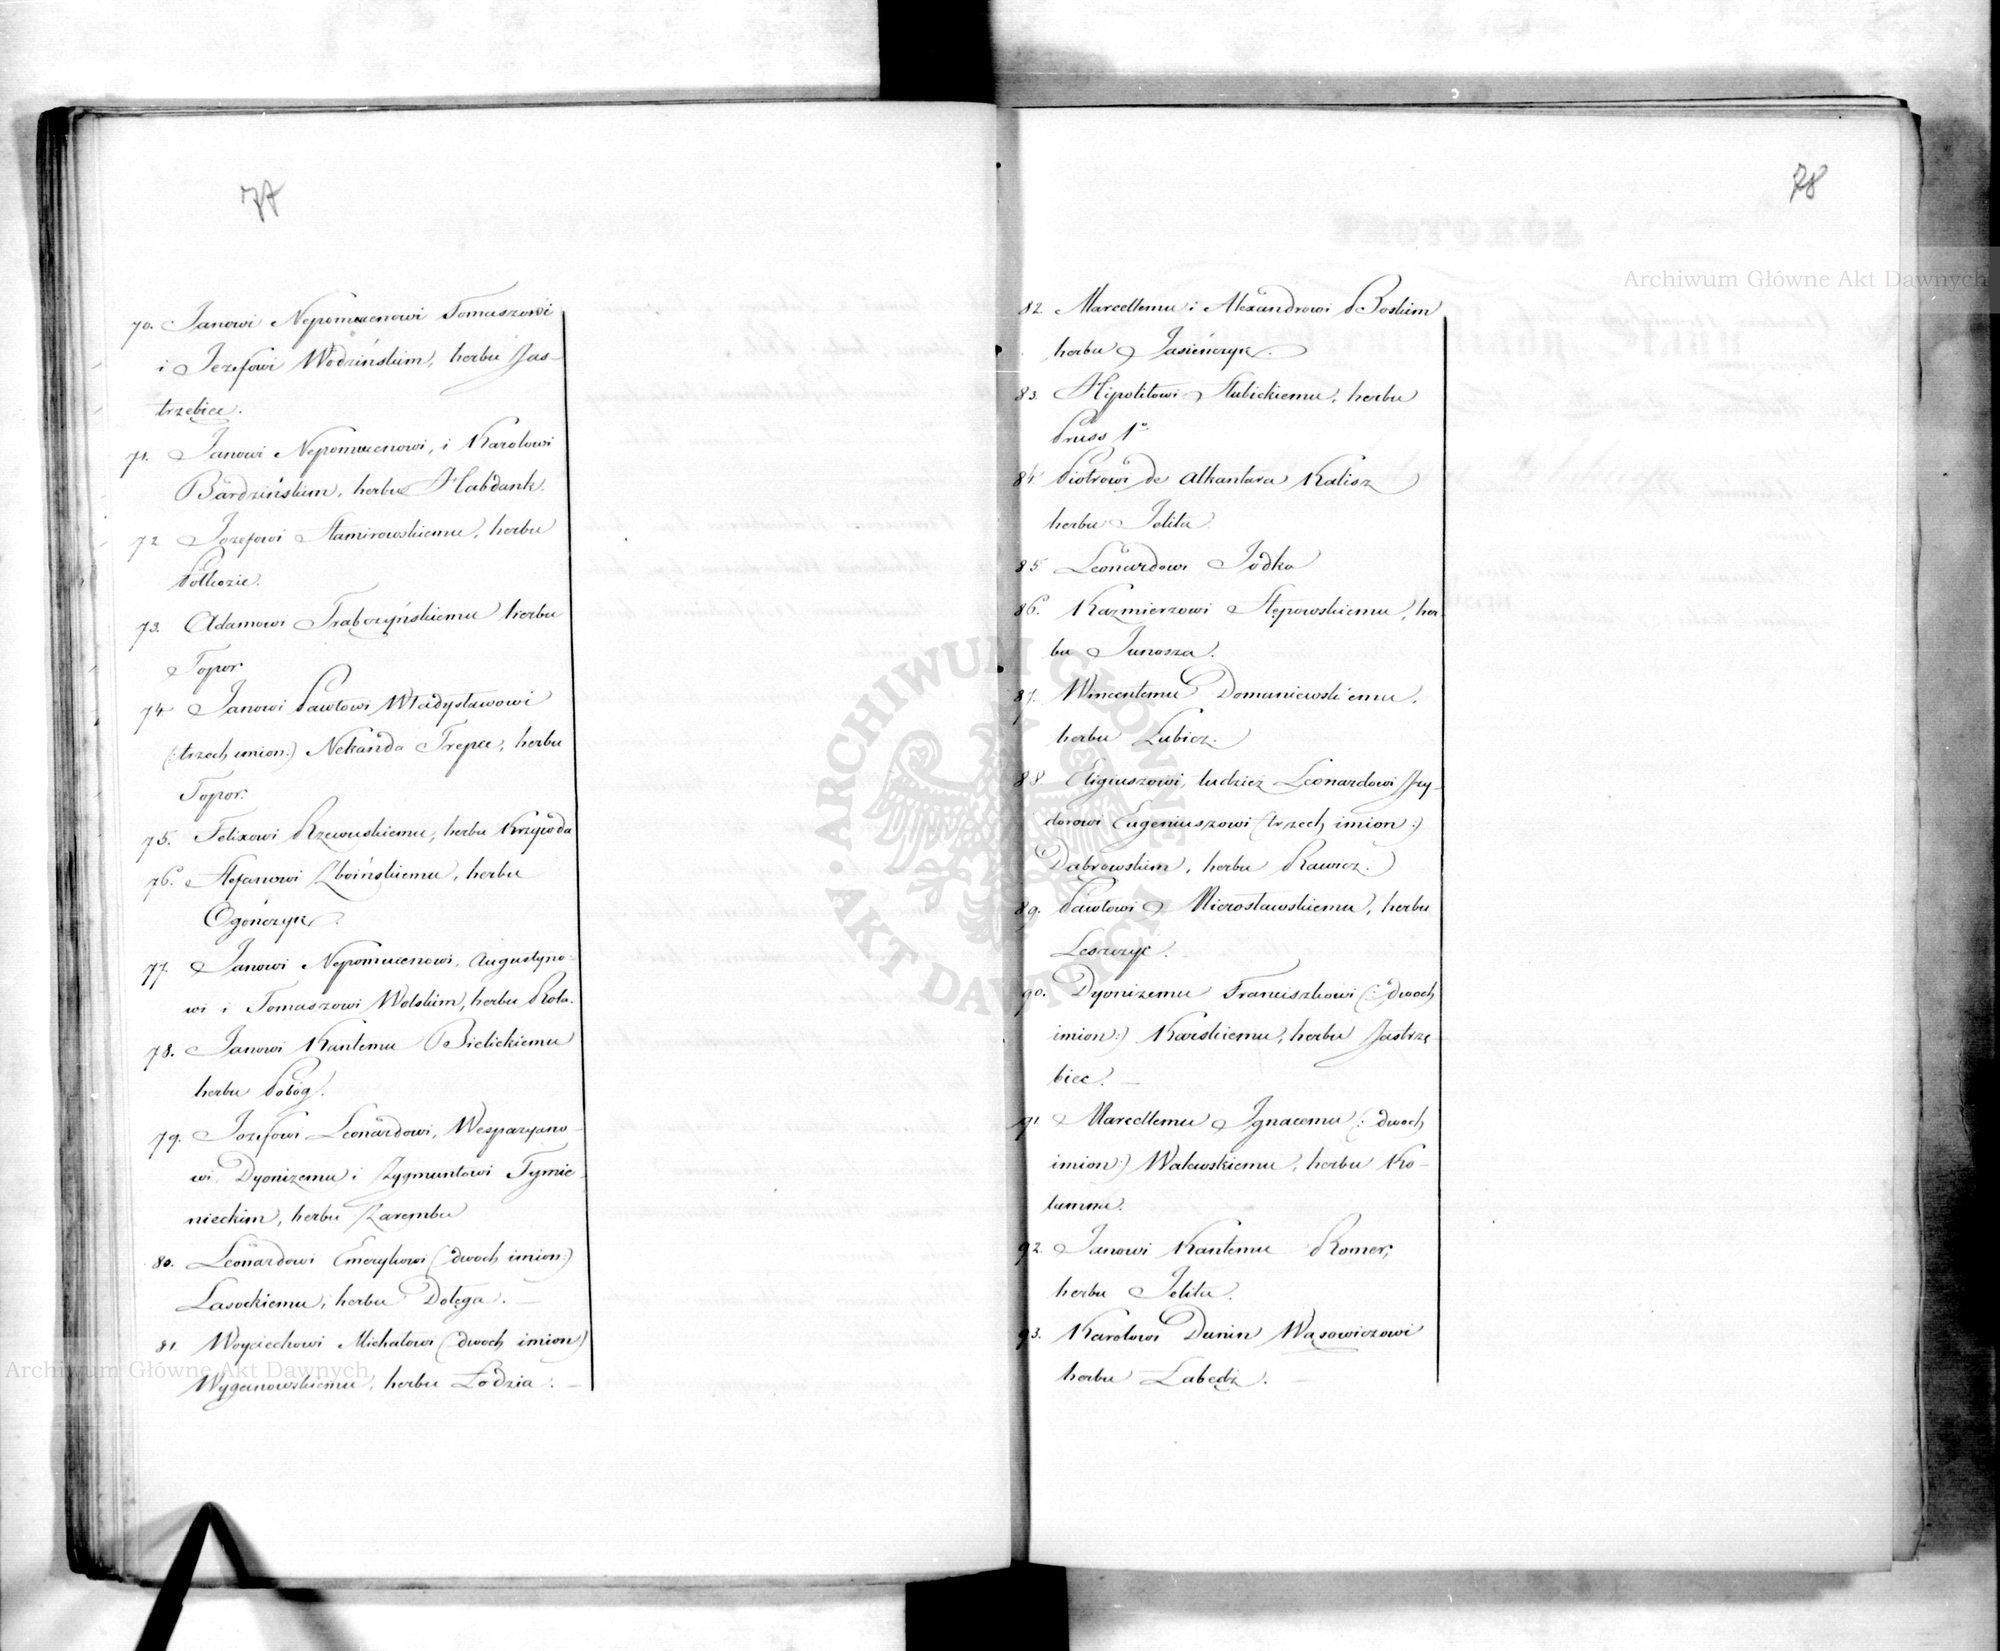 77
70. Janowi Nepomucenowi Tomaszowi
i Jozefowi Wodzińskim, herbu Jas-
trzębiec.
71. Janowi Nepomucenowi, i Karolowi
Bardzińskim, herbu Habdank.
72 Jozefowi Stamirowskiemu, herbu
Półkozic.
73. Adamowi Trąbczyńskiemu herbu
Topor
74. Janowi Pawłowi Władysławowi
(:trzech imion:) Nekanda Trepce, herbu
Topor.
75. Felixowi Rzewuskiemu, herbu Krzywda
76. Stefanowi Zboińskiemu, herbu
Ogończyk.
77. Janowi Nepomucenowi, Augustyno-
wi i Tomaszowi Wolskim, herbu Rola.
78. Janowi Kantemu Bielickiemu
herbu Pobóg.
79. Jozefowi Leonardowi, Wespazyano-
wi, Dyonizemu i Zygmuntowi Tymie-
nieckim, herbu Zaremba
80. Leonardowi Emerykowi (:dwoch imion:)
Lasockiemu, herbu Dołęga. —
81. Woyciechowi Michałowi (:dwoch imion)
Wyganowskiemu, herbu Łodzia. —
78
82. Marcellemu i Alexandrowi Boskim
herbu Jasieńczyk.
83. Hipolitowi Słubickiemu, herbu
Pruss 1º
84 Piotrowi de Alkantara Kalisz
herbu Jelita
85 Leonardowi Jodko
86. Kazmierzowi Stępowskiemu, her-
bu Junosza.
87. Wincentemu Domaniewskiemu,
herbu Lubicz.
88. Eligiuszowi, tudzież Leonardowi Izy-
dorowi Eugeniuszowi (trzech imion:)
Dąbrowskim, herbu Rawicz.
89. Pawłowi Mierosławskiemu, herbu
Leszczyc.
90. Dyonizemu Franciszkowi (:dwoch
imion:) Karskiemu, herbu Jastrzę-
biec. —
91 Marcellemu Ignacemu (:dwoch
imion:) Walewskiemu, herbu Ko-
lumna.
92. Janowi Kantemu Romer,
herbu Jelita.
93. Karolowi Dunin Wąsowiczowi
herbu Łabędź. —
Archiwum Główne Akt Dawnych
Archiwum Główne Akt Dawnych
ARCHIWUM GŁÓWNE AKT DAWNYCH
PROTOKÓŁ